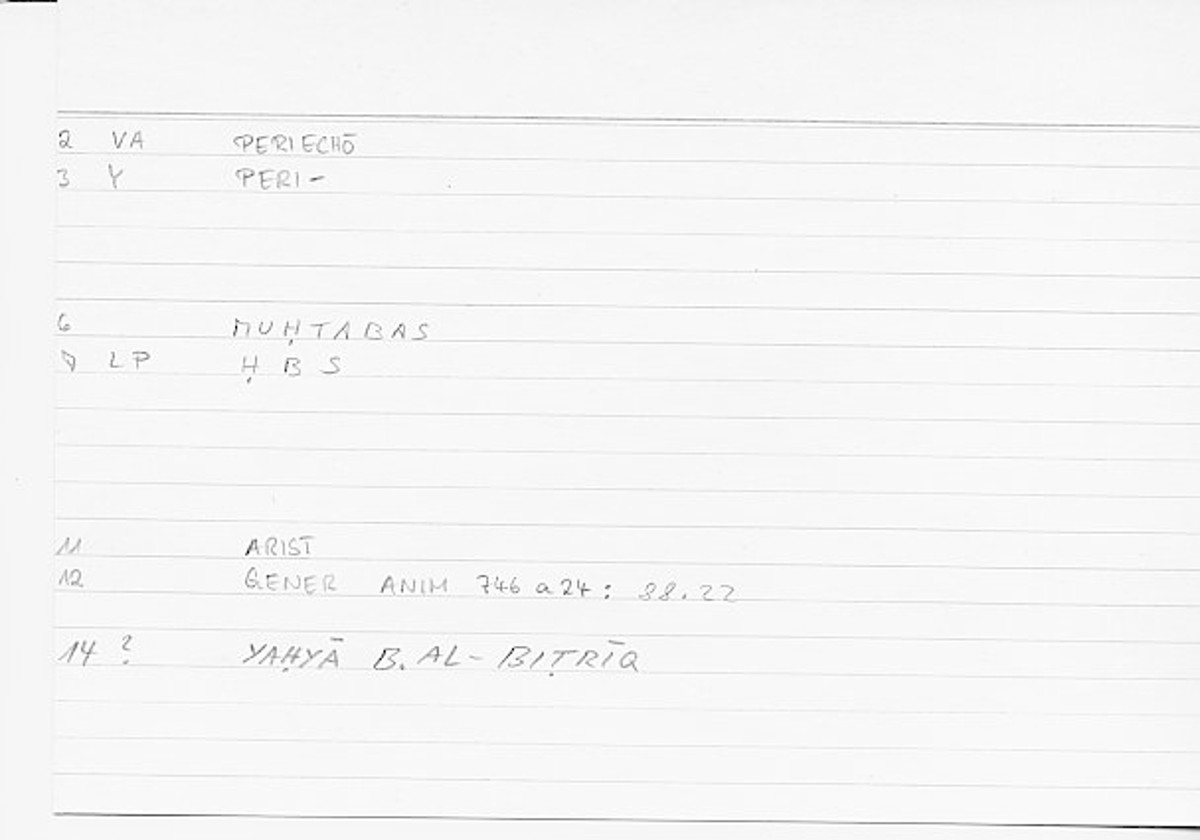 2 VA PERIECHŌ
3 Y PERI-
6 MUḤTABAS
7 LP Ḥ B S
11 ARIST
12 GENER ANIM 746 a 24 : 88.22
14 ? YAḤYĀ B. AL-BIṬRĪQ